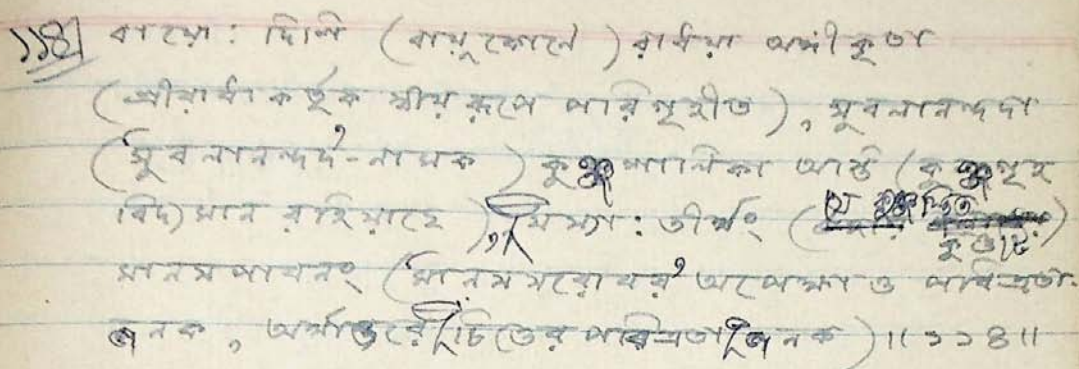 ১১৪] বায়ো: দিশি (বায়ুকোনে) রাধয়া অঙ্গীকৃতা
(শ্রীরাধাকর্তৃক স্বীয়রূপে পরিগৃহীত), সুবলানন্দদা
('সুবলানন্দদ'-নামক) কুঞ্জশালিকা অস্তি (কুঞ্জগৃহ
বিদ্যমান রহিয়াছে), যস্যা: তীর্থং (যে কুঞ্জস্থিত কুণ্ডটি)
মানসপাবনং ('মানসসরোবর' অপেক্ষাও পবিত্রতা-
জনক, অর্থান্তরে চিত্তের পবিত্রতাজনক)॥১১৪॥